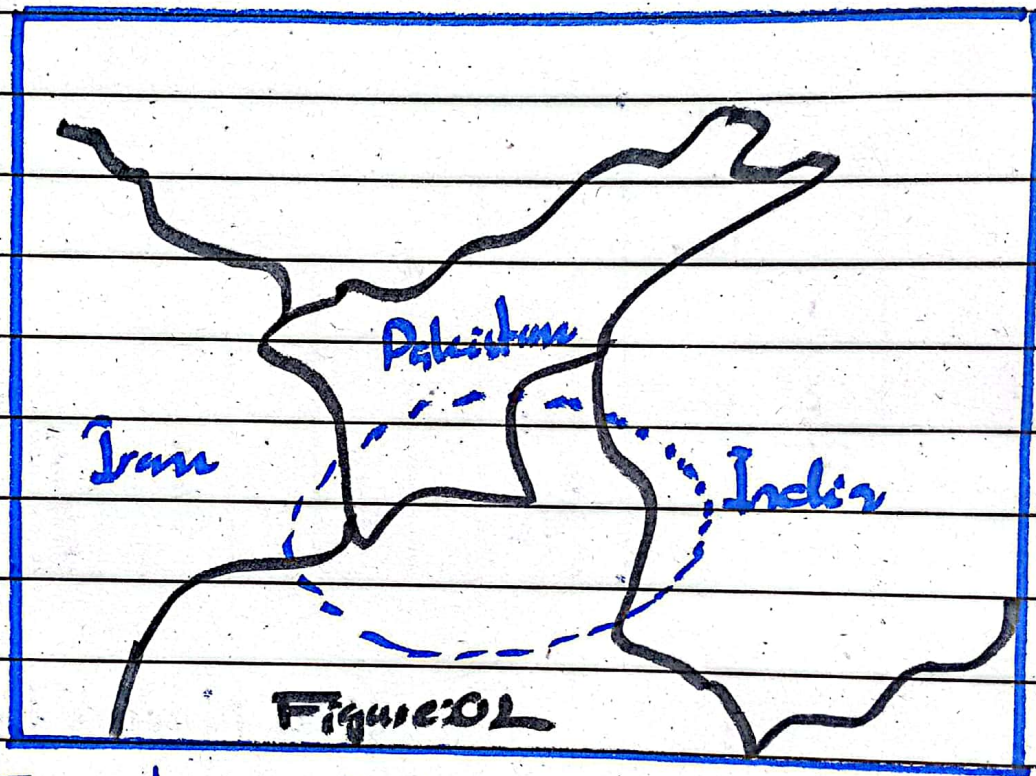 Pakistan
Iran
India
Figure:02